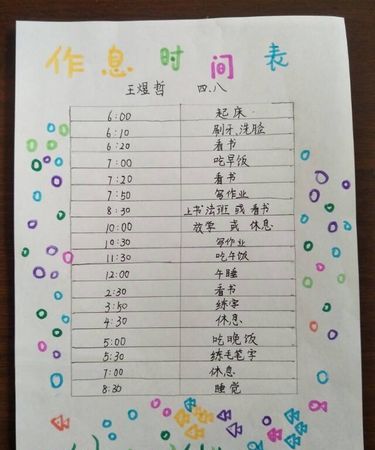 作息时间表
王煜哲 四.八
6:00 起床
6:10 刷牙、洗脸
6:20 看书
7:00 吃早饭
7:20 看书
7:50 写作业
8:30 上书法班 或 看书
10:00 放学 或 休息
10:30 写作业
11:30 吃午饭
12:00 午睡
2:30 看书
3:50 练字
4:30 休息
5:00 吃晚饭
5:30 练毛笔字
7:00 休息
8:30 睡觉